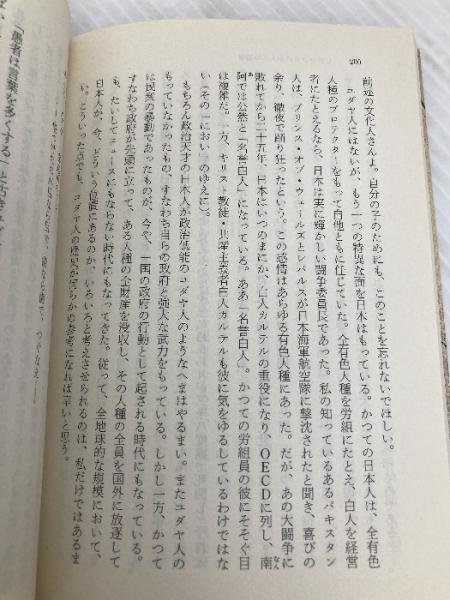 206
前述の文化人さんよ。自分の子のためにも、このことを忘れないでほしい。
ユダヤ人にはないが、もう一つの特異な面を日本はもっている。かつての日本人は、全有色
人種のプロテクターをもって自他ともに任じていた。全有色人種を労組にたとえ、白人を経営
者にたとえるなら、日本は実に輝かしい闘争委員長であった。私の知っているあるパキスタン
人は、プリンス・オブ・ウェールズとレパルスが日本海軍航空隊に撃沈されたと聞き、喜びの
余り、徹夜で踊り狂ったという。この感情はあらゆる有色人種にあった。だが、あの大闘争に
敗れてから二十五年、日本はいつのまにか、白人カルテルの重役になり、OECDに列し、南
阿では公然と「名誉白人」になっている。ああ「名誉白人」。かつての労組員の彼にそそぐ目
は複雑だ。一方、キリスト教徒・共産主義者白人カルテルも彼に気をゆるしているわけではな
い(その「におい」のゆえに)。
もちろん政治天才の日本人が政治低能のユダヤ人のようなへまはやるまい。またユダヤ人の
もっていなかったもの、すなわち自らの政府と強大な武力をもっている。しかし一方、かつて
は民衆の暴動であったものが、今や、一国の政府の行動として起される時代にもなっている。
すなわち政府が先頭に立って、ある人種の全財産を没収し、その人種の全員を国外に放逐して
も、たいしてニュースにもならない時代にもなってきた。従って、全地球的な規模において、
日本人が、今、どういう位置にあるのか、いろいろと考えさせられるのは、私だけではあるま
い。こういった点でも、ユダヤ人の歴史が何らかの参考になれば幸いと思う。
「愚者は言葉を多くする」と